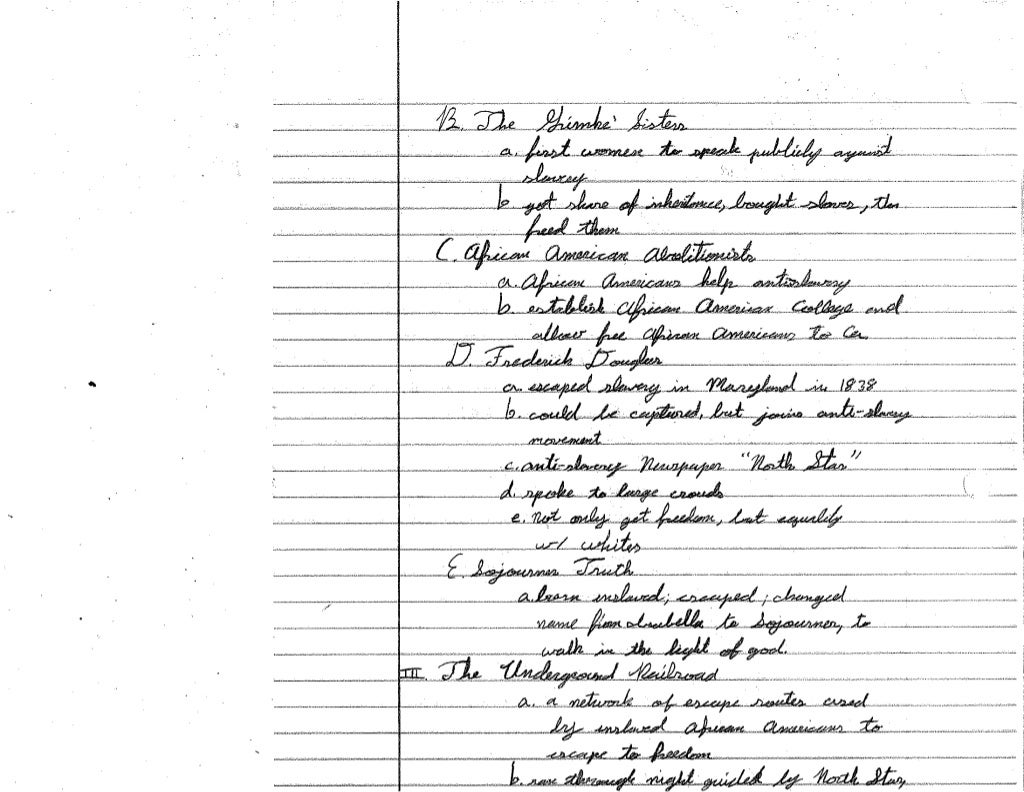 B. The Grimke' Sisters
a. first women to speak publicly against
slavery
b. got share of inheritence, bought slaves, then
freed them
C. African American Abolitionists
a. African Americans help antislavery
b. establish African American College and
allow free African Americans to Ca.
D. Frederick Douglass
a. escaped slavery in Maryland in 1838
b. could be captured, but joins anti-slavery
movement
c. anti-slavery Newspaper "North Star"
d. spoke to large crowds
e. not only get freedom, but equality
w/ whites
E. Sojourner Truth
a. born enslaved; escaped; changed
name from Isabella to Sojourner, to
walk in the light of god.
III. The Underground Railroad
a. a network of escape routes used
by enslaved African Americans to
escape to freedom
b. ran through night guided by North Star,